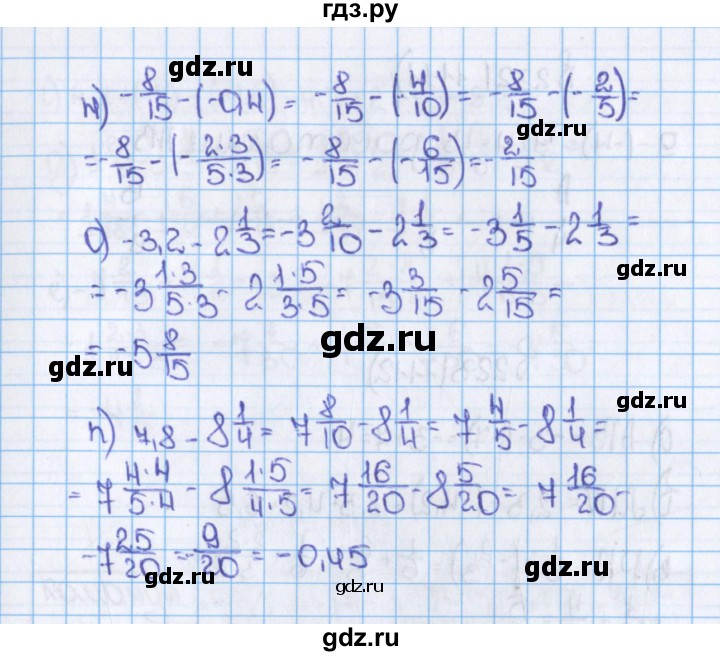 гдз.ру
н) -8/15 - (-0,4) = -8/15 - (-4/10) = -8/15 - (-2/5) =
gdz.ru
gdz.ru
= -8/15 - (-2·3/5·3) = -8/15 - (-6/15) = -2/15
о) -3,2 - 2 1/3 = -3 2/10 - 2 1/3 = -3 1/5 - 2 1/3 =
gdz.ru
= -3 1·3/5·3 - 2 1·5/3·5 = -3 3/15 - 2 5/15 =
gdz.ru
gdz.ru
= -5 8/15
gdz.ru
п) 7,8 - 8 1/4 = 7 8/10 - 8 1/4 = 7 4/5 - 8 1/4 =
= 7 4·4/5·4 - 8 1·5/4·5 = 7 16/20 - 8 5/20 = 7 16/20 -
gdz.ru
-7 25/20 = -9/20 = -0,45
gdz.ru
gdz.ru
gdz.ru